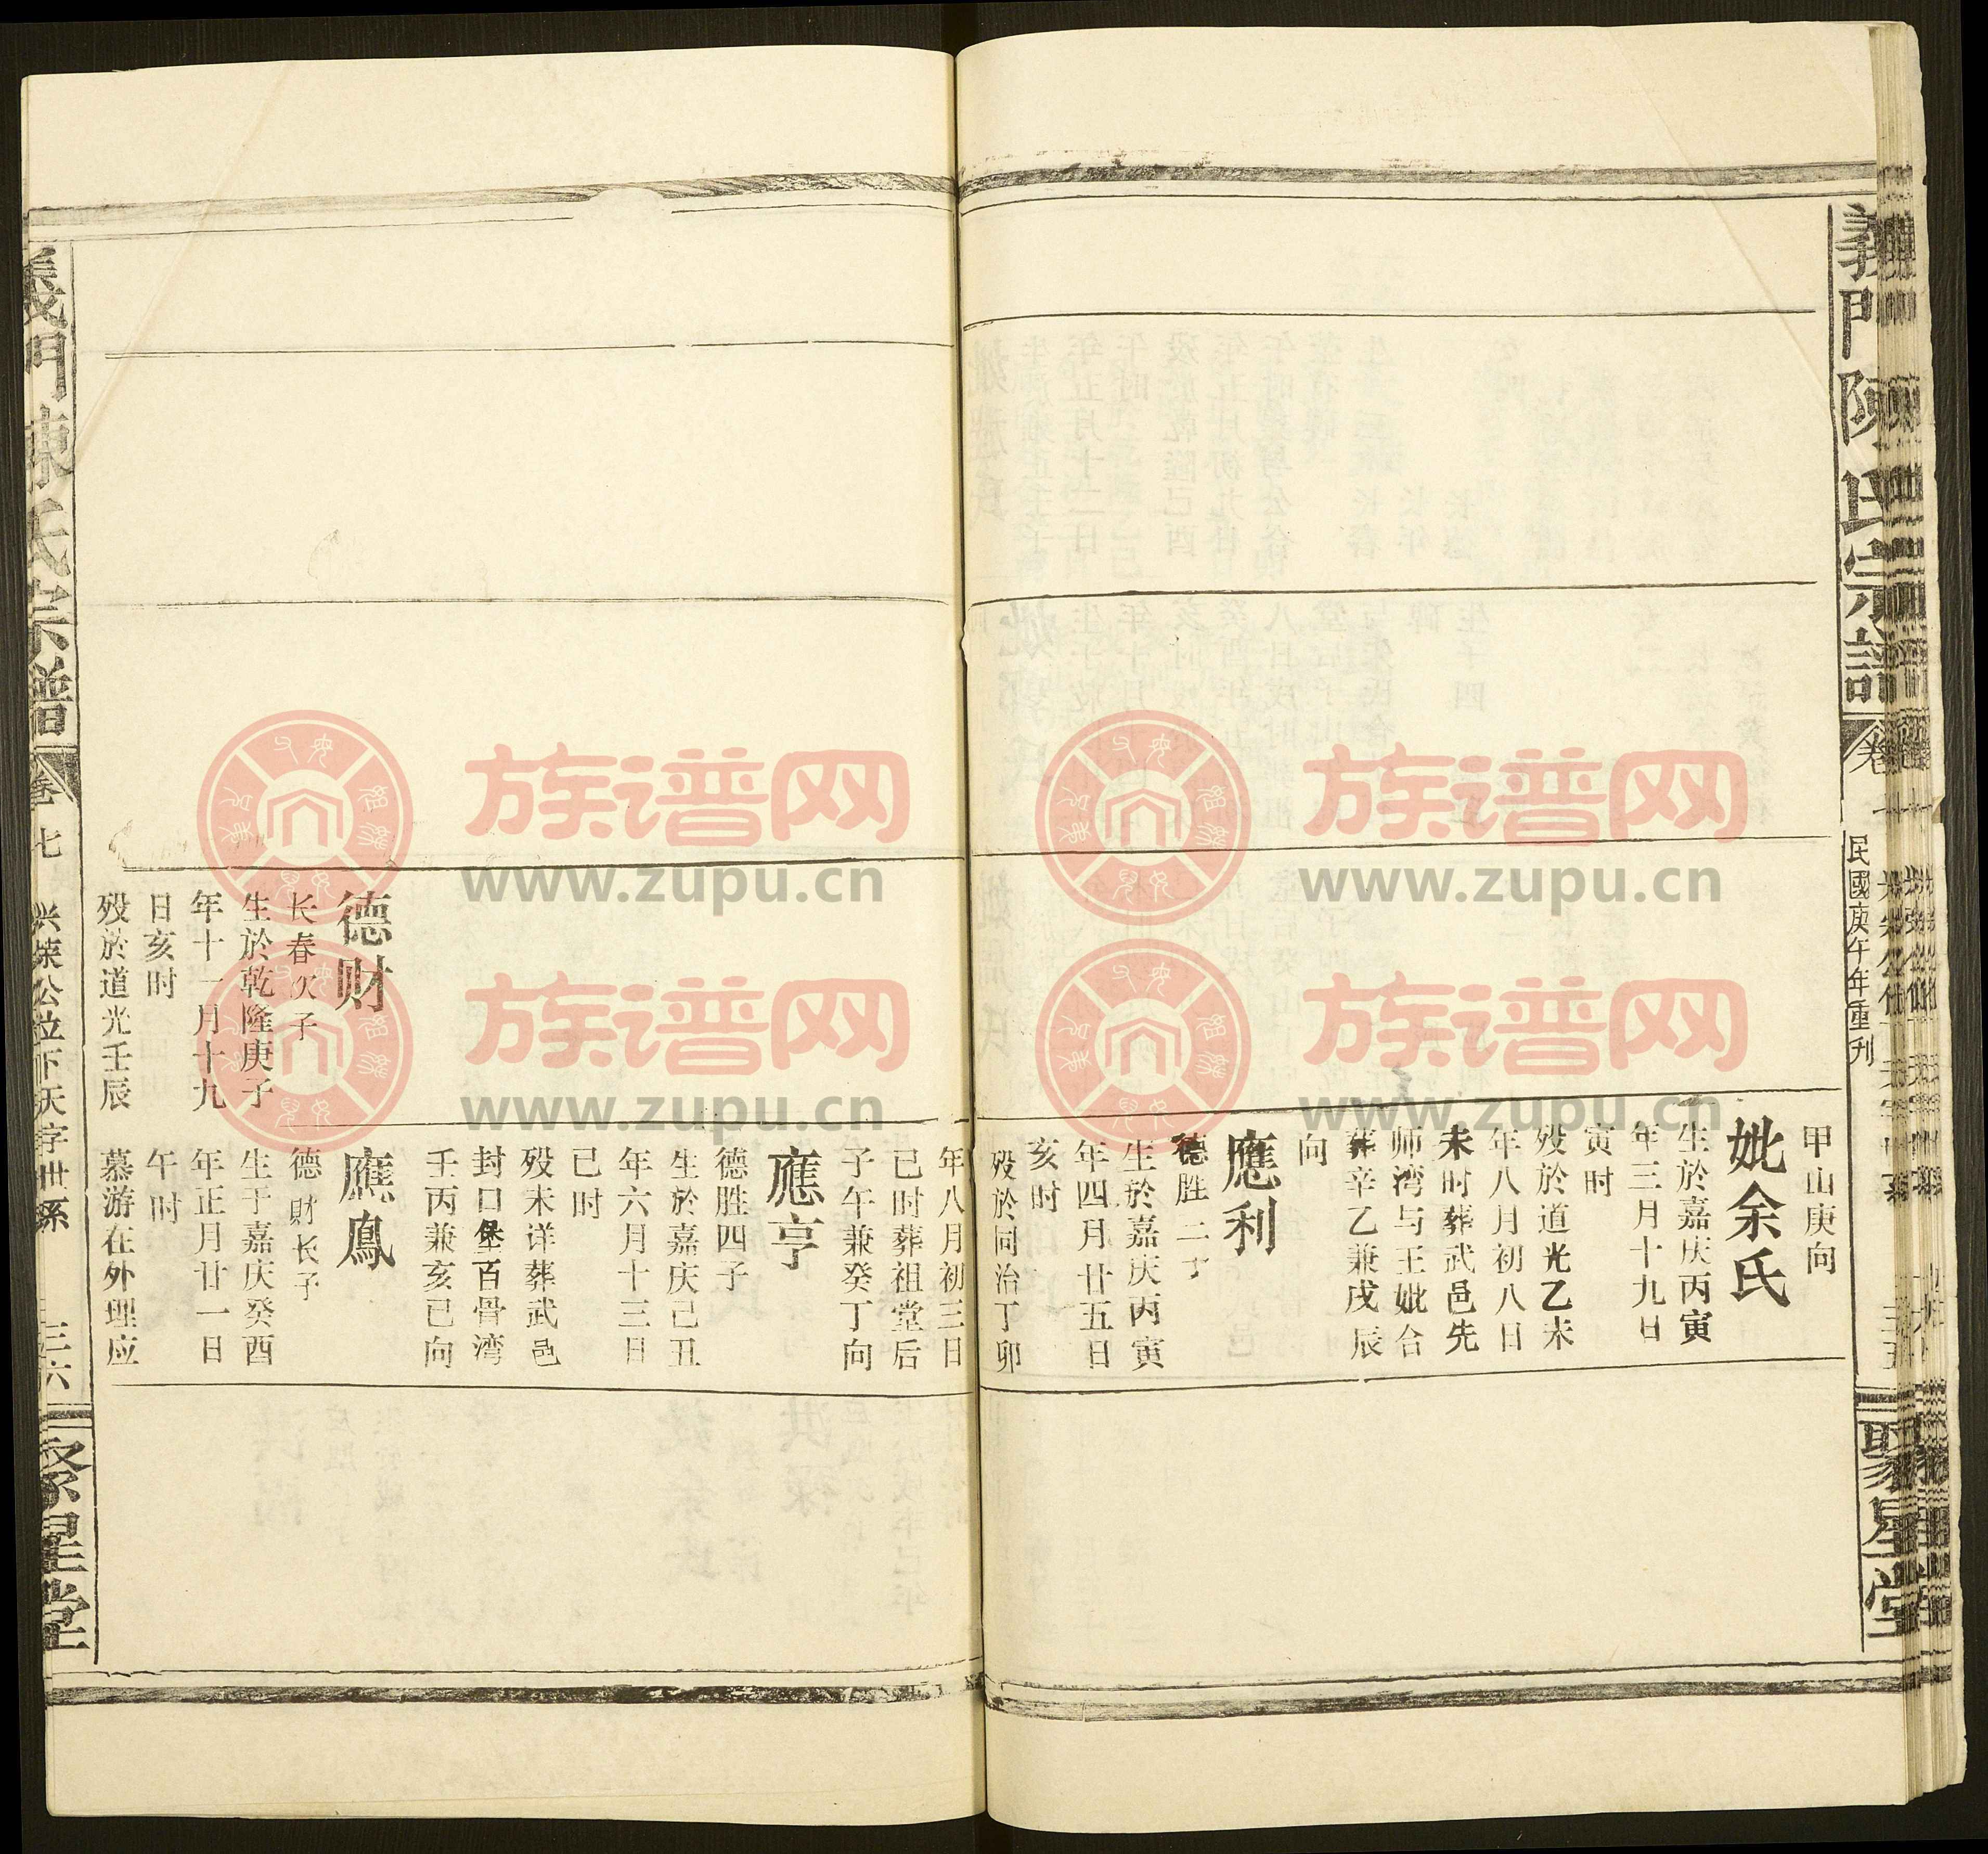 義門陳氏宗譜
卷
民國庚午年重刋
聚星堂
甲山庚向
妣余氏
生於嘉庆丙寅
年三月十九日
寅时
殁於道光乙未
年八月初八日
未时葬武邑先
师湾与王妣合
葬辛乙兼戌辰
向
應利
德胜二子
生於嘉庆丙寅
年四月廿五日
亥时
殁於同治丁卯
年八月初三日
巳时葬祖堂后
子午兼癸丁向
應亨
德胜四子
生於嘉庆己丑
年六月十三日
巳时
殁未详葬武邑
封口堡百骨湾
壬丙兼亥巳向
德财
长春次子
生於乾隆庚子
年十一月十九
日亥时
殁於道光壬辰
應鳳
德财长子
生于嘉庆癸酉
年正月廿一日
午时
慕游在外理应
義門陳氏宗譜
卷七
兴荣公位下天字世系
三六
聚星堂
族谱网
www.zupu.cn
族谱网
www.zupu.cn
族谱网
www.zupu.cn
族谱网
www.zupu.cn